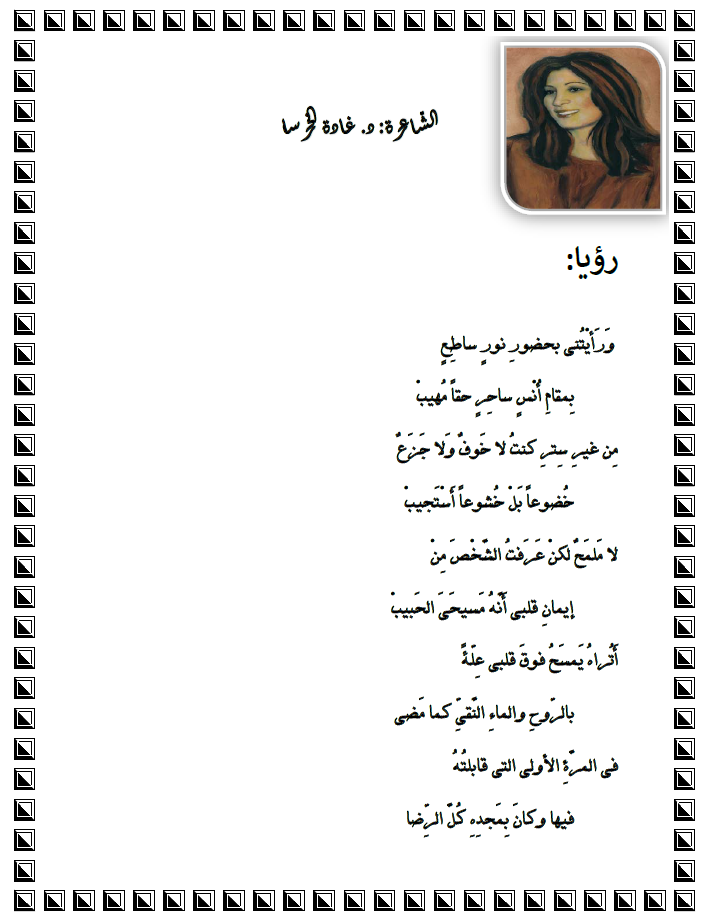 الشّاعرة: د. غادة الحرسا
رؤيا:
وَرَأَيْتُنى بحضورِ نورٍ ساطِعٍ
بِمقامِ أُنْسٍ ساحِرٍ حقاً مُهيبْ
مِن غيرِ سِترِ كنتُ لا خَوفٌ وَلا جَزَعٌ
خُضوعاً بَلْ خُشوعاً أَسْتَجيبْ
لا مَلمَحٌ لكنْ عَرَفتُ الشَّخْصَ مِنْ
إيمانِ قلبى أَنَّهُ مَسيحَىَ الحَبيبْ
أَتُراهُ يَمسَحُ فوقَ قلبى عِلّةً
بالرّوحِ والماءِ النَّقىِّ كما مَضى
فى المرَّةِ الأولى التى قابلتُهُ
فيها وكانَ بِمَجدِهِ كُلَّ الرِّضا